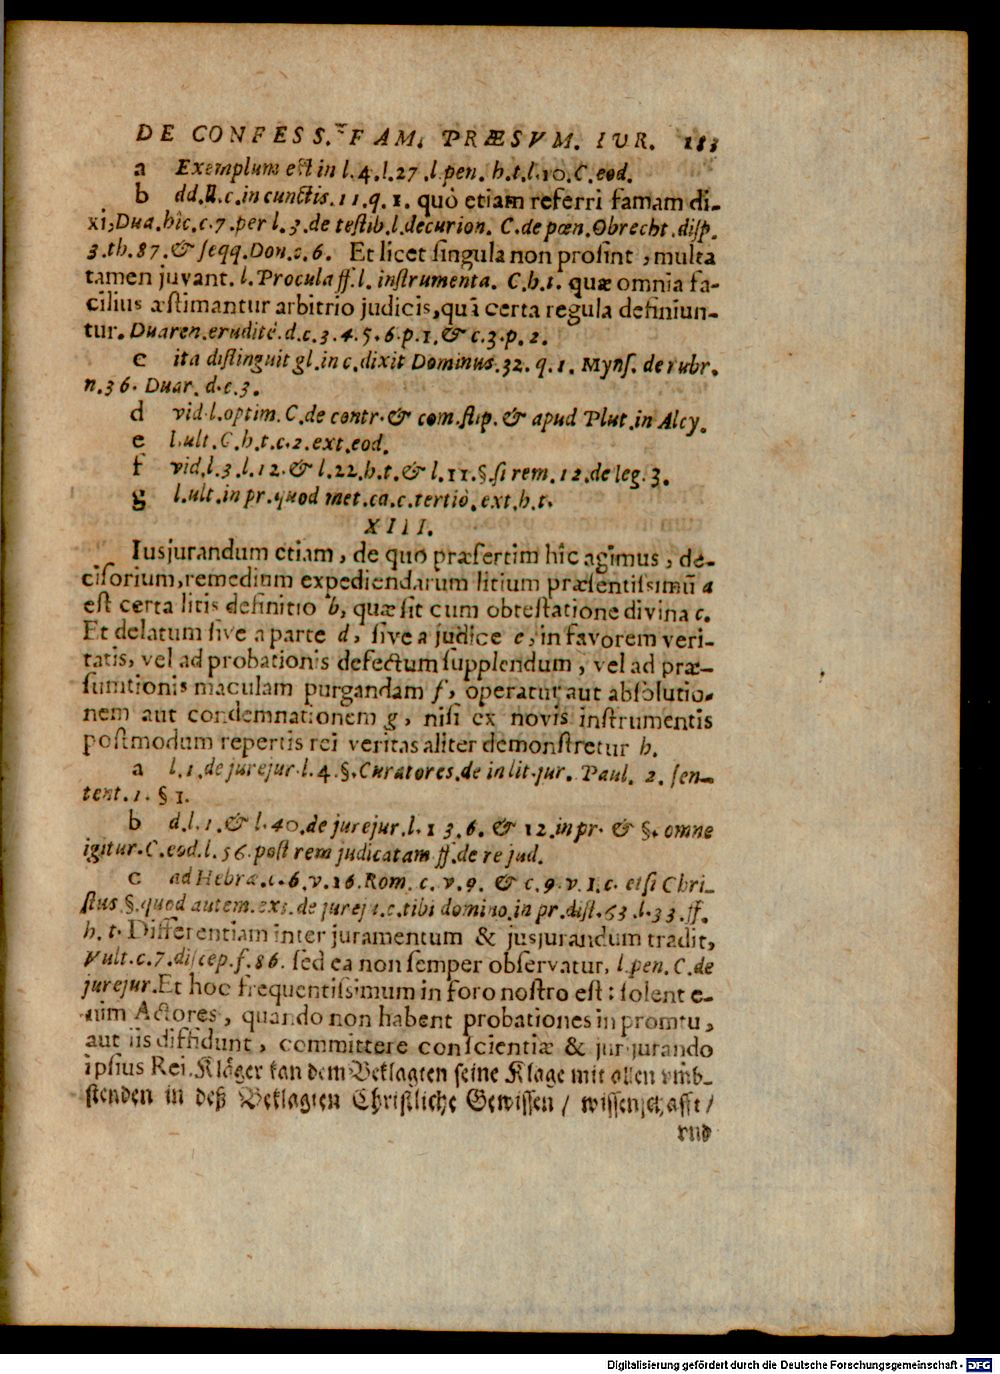 DE CONFESS. FAM. PRÆSVM. IVR.
a Exemplum est in l.4.l.27.l.pen. h.t.l.10.C.eod.
b dd.ll.c.in cunctis.11.q.1. quò etiam referri famam di-
xi,Dua.hîc.c.7.per l.3.de testib.l.decurion. C.de pœn.Obrecht.disp.
3.th.87.& seqq.Don.c.6. Et licet singula non prosint, multa
tamen juvant. l.Procula ff.l. instrumenta. C.h.t. quæ omnia fa-
cilius æstimantur arbitrio judicis,quā certa regula definiun-
tur. Duaren.eruditè.d.c.3.4.5.6.p.1.& c.3.p.2.
c ita distinguit gl.in c.dixit Dominus.32. q.1. Myns. de rubr.
n.36. Duar. d.c.3.
d vid.l.optim.C.de contr.& com.stip.& apud Plut.in Alcy.
e l.ult.C.h.t.c.2.ext.eod.
f vid.l.3.l.12.& l.22.h.t.& l.11.§.si rem.12.de leg.3.
g l.ult.in pr.quod met.ca.c.tertiò.ext.h.t.
XIII.
Iusjurandum etiam, de quo præsertim hîc agimus, de-
cisorium,remedium expediendarum litium præsentissimū a
est certa litis definitio b, quæ fit cum obtestatione divina c.
Et delatum sive a parte d, sive a judice e, in favorem veri-
tatis, vel ad probationis defectum supplendum, vel ad præ-
sumtionis maculam purgandam f, operatur aut absolutio-
nem aut condemnationem g, nisi ex novis instrumentis
postmodum repertis rei veritas aliter demonstretur h.
a l.1.de jurejur.l.4.§.Curatores.de in lit.jur. Paul. 2. sen-
tent.1. § 1.
b d.l.1.& l.40.de jurejur.l.1 3.6. & 12.in pr. & §. omne
igitur.C.eod.l.56.post rem judicatam ff.de re jud.
c ad Hebræ.c.6.v.16.Rom. c. v.9. & c.9.v.1.c. etsi Chri-
stus.§.quod autem.ext.de jurej c.tibi domino.in pr.dist.63.l.33.ff.
h. t. Differentiam inter juramentum & jusjurandum tradit,
Vult.c.7.discep.f.86. sed ea non semper observatur, l.pen. C.de
jurejur.Et hoc frequentissimum in foro nostro est: solent e-
nim Actores, quando non habent probationes in promtu,
aut iis diffidunt, committere conscientiæ & jurjurando
ipsius Rei. Kläger kan dem Beklagten seine Klage mit allen vmb-
stenden in deß Beklagten Christliche Gewissen / wissenschafft /
vnd
Digitalisierung gefördert durch die Deutsche Forschungsgemeinschaft - DFG